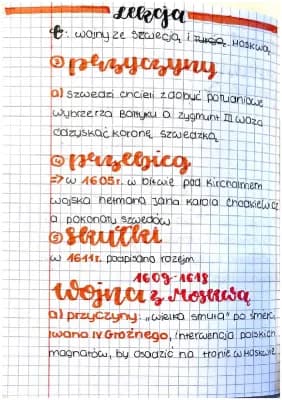 Lekcja
t: wojny ze szwecją i Moskwą
① przyczyny
a) szwedzi chcieli zdobyć południowe
wybrzerza Bałtyku a zygmunt III waza
odzyskać koronę szwedzką
② przebieg
=> w 1605r. w bitwie pod Kircholmem
wojska hetmana Jana Karola chodkiewicz
a pokonały szwedów
③ skutki
w 1611r. podpisano rozejm
1609-1618
wojna z Moskwą
a) przyczyny: „wielka smuta" po śmierc.
Iwana IV Groźnego, interwencja polskich
magnatów, by osadzić na tronie w Moskwie